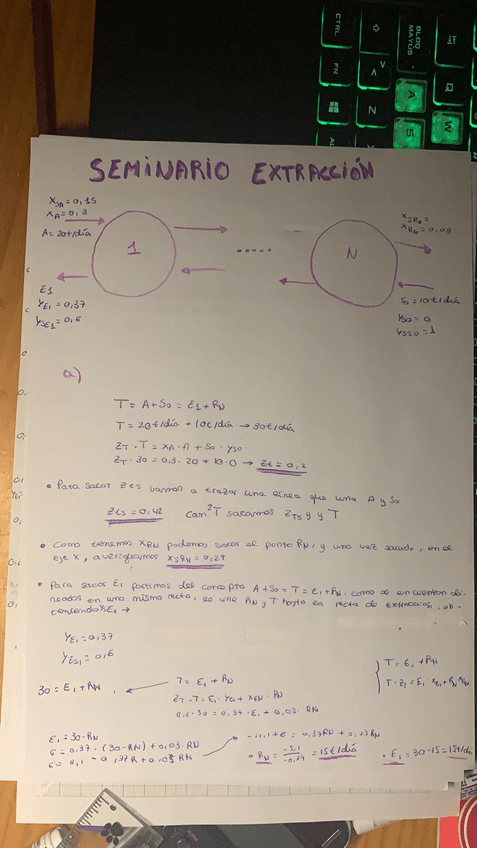 CTRL
FN
BLOQ
MAYUS
A
S
Z
Q
W
SEMINARIO EXTRACCIÓN
XSA=0,15
XA=0,3
A=20t/día
1
.....
N
XSRN=
XRN=0,03
E1
YE1=0,37
YSE1=0,6
S0=10t/día
YS0=0
YSS0=1
a)
T=A+S0=E1+RN
T=20t/día+10t/día→30t/día
ZT·T=XA·A+S0·YS0
ZT·30=0,3·20+10·0→Zt=0,2
• Para sacar Zts vamos a trazar una línea que une A y S0
Zts=0,42
T sacamos ZTS y T
• Como tenemos XRN podemos sacar el punto RN, y una vez sacado, en el
eje X, averiguamos XSRN=0,27
• Para sacar E1 partimos del concepto A+S0=T=E1+RN, como se encuentran ali-
neados en una misma recta, se une RN y T hasta la recta de extractos, ob-
teniendo YE1→
YE1=0,37
YES1=0,6
30=E1+RN
T=E1+RN
ZT·T=E1·YE1+XRN·RN
0,2·30=0,37·E1+0,03·RN
T=E1+RN
E1=30-RN
6=0,37·(30-RN)+0,03·RN
6=11,1-0,37R+0,03RN
-11,1+6=0,37RN+0,03RN
• RN=-5,1/-0,34=15t/día
• E1=30-15=15t/día